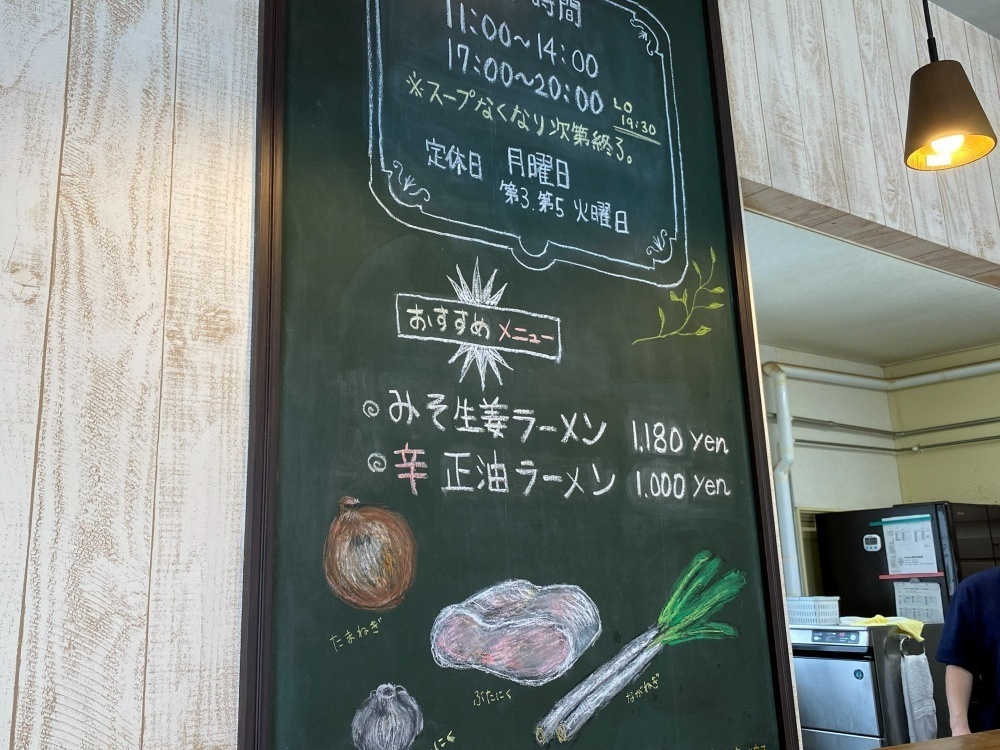 時間
11:00〜14:00
17:00〜20:00 LO 19:30
※スープなくなり次第終了。
定休日 月曜日
第3.第5 火曜日
おすすめ メニュー
みそ生姜ラーメン 1,180 yen
辛 正油ラーメン 1,000 yen
たまねぎ
ぶたにく
ながねぎ
にく